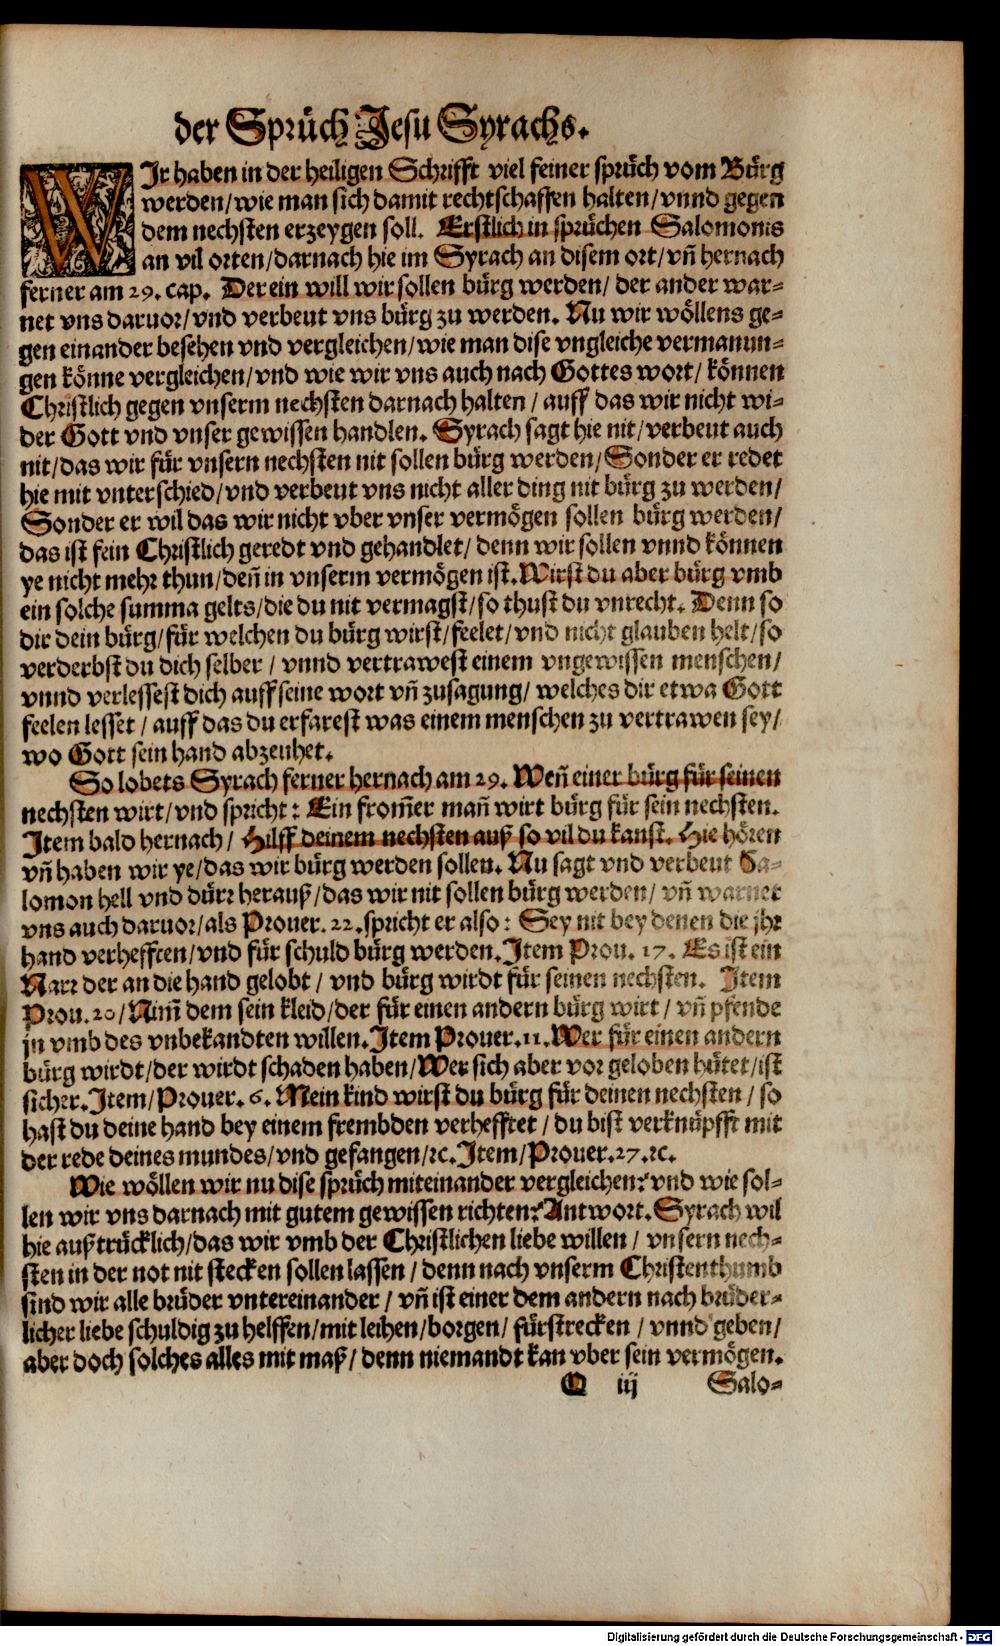 der Sprüch Jesu Syrachs.
WIr haben in der heiligen Schrifft viel feiner sprüch vom Bürg
werden/ wie man sich damit rechtschaffen halten/ vnnd gegen
dem nechsten erzeygen soll. Erstlich in sprüchen Salomonis
an vil orten/ darnach hie im Syrach an disem ort/ vñ hernach
ferner am 29. cap. Der ein will wir sollen bürg werden/ der ander war=
net vns daruor/ vnd verbeut vns bürg zu werden. Nu wir wöllens ge=
gen einander besehen vnd vergleichen/ wie man dise vngleiche vermanun=
gen könne vergleichen/ vnd wie wir vns auch nach Gottes wort/ können
Christlich gegen vnserm nechsten darnach halten / auff das wir nicht wi=
der Gott vnd vnser gewissen handlen. Syrach sagt hie nit/ verbeut auch
nit/ das wir für vnsern nechsten nit sollen bürg werden/ Sonder er redet
hie mit vnterschied/ vnd verbeut vns nicht aller ding nit bürg zu werden/
Sonder er wil das wir nicht vber vnser vermögen sollen bürg werden/
das ist fein Christlich geredt vnd gehandlet/ denn wir sollen vnnd können
ye nicht mehr thun/ deñ in vnserm vermögen ist. Wirst du aber bürg vmb
ein solche summa gelts/ die du nit vermagst/ so thust du vnrecht. Denn so
dir dein bürg/ für welchen du bürg wirst/ feelet/ vnd nicht glauben helt/ so
verderbst du dich selber / vnnd vertrawest einem vngewissen menschen/
vnnd verlessest dich auff seine wort vñ zusagung/ welches dir etwa Gott
feelen lesset / auff das du erfarest was einem menschen zu vertrawen sey/
wo Gott sein hand abzeuhet.
So lobets Syrach ferner hernach am 29. Weñ einer bürg für seinen
nechsten wirt/ vnd spricht: Ein from̃er mañ wirt bürg für sein nechsten.
Item bald hernach / Hilff deinem nechsten auß so vil du kanst. Hie hören
vñ haben wir ye/ das wir bürg werden sollen. Nu sagt vnd verbeut Sa=
lomon hell vnd dürr herauß/ das wir nit sollen bürg werden/ vñ warnet
vns auch daruor/ als Prouer. 22. spricht er also: Sey nit bey denen die jhr
hand verhefften/ vnd für schuld bürg werden. Item Prou. 17. Es ist ein
Narr der an die hand gelobt / vnd bürg wirdt für seinen nechsten. Item
Prou. 20/ Nim̃ dem sein kleid/ der für einen andern bürg wirt / vñ pfende
jn vmb des vnbekandten willen. Item Prouer. 11. Wer für einen andern
bürg wirdt/ der wirdt schaden haben/ Wer sich aber vor geloben hütet/ ist
sicher. Item/ Prouer. 6. Mein kind wirst du bürg für deinen nechsten / so
hast du deine hand bey einem frembden verhefftet / du bist verknüpfft mit
der rede deines mundes/ vnd gefangen/ ꝛc. Item/ Prouer. 27. ꝛc.
Wie wöllen wir nu dise sprüch miteinander vergleichen? vnd wie sol=
len wir vns darnach mit gutem gewissen richten? Antwort. Syrach wil
hie außtrücklich/ das wir vmb der Christlichen liebe willen / vnsern nech=
sten in der not nit stecken sollen lassen / denn nach vnserm Christenthumb
sind wir alle brüder vntereinander / vñ ist einer dem andern nach brüder=
licher liebe schuldig zu helffen/ mit leihen/ borgen/ fürstrecken / vnnd geben/
aber doch solches alles mit maß/ denn niemandt kan vber sein vermögen.
Q iij Salo=
Digitalisierung gefördert durch die Deutsche Forschungsgemeinschaft - DFG